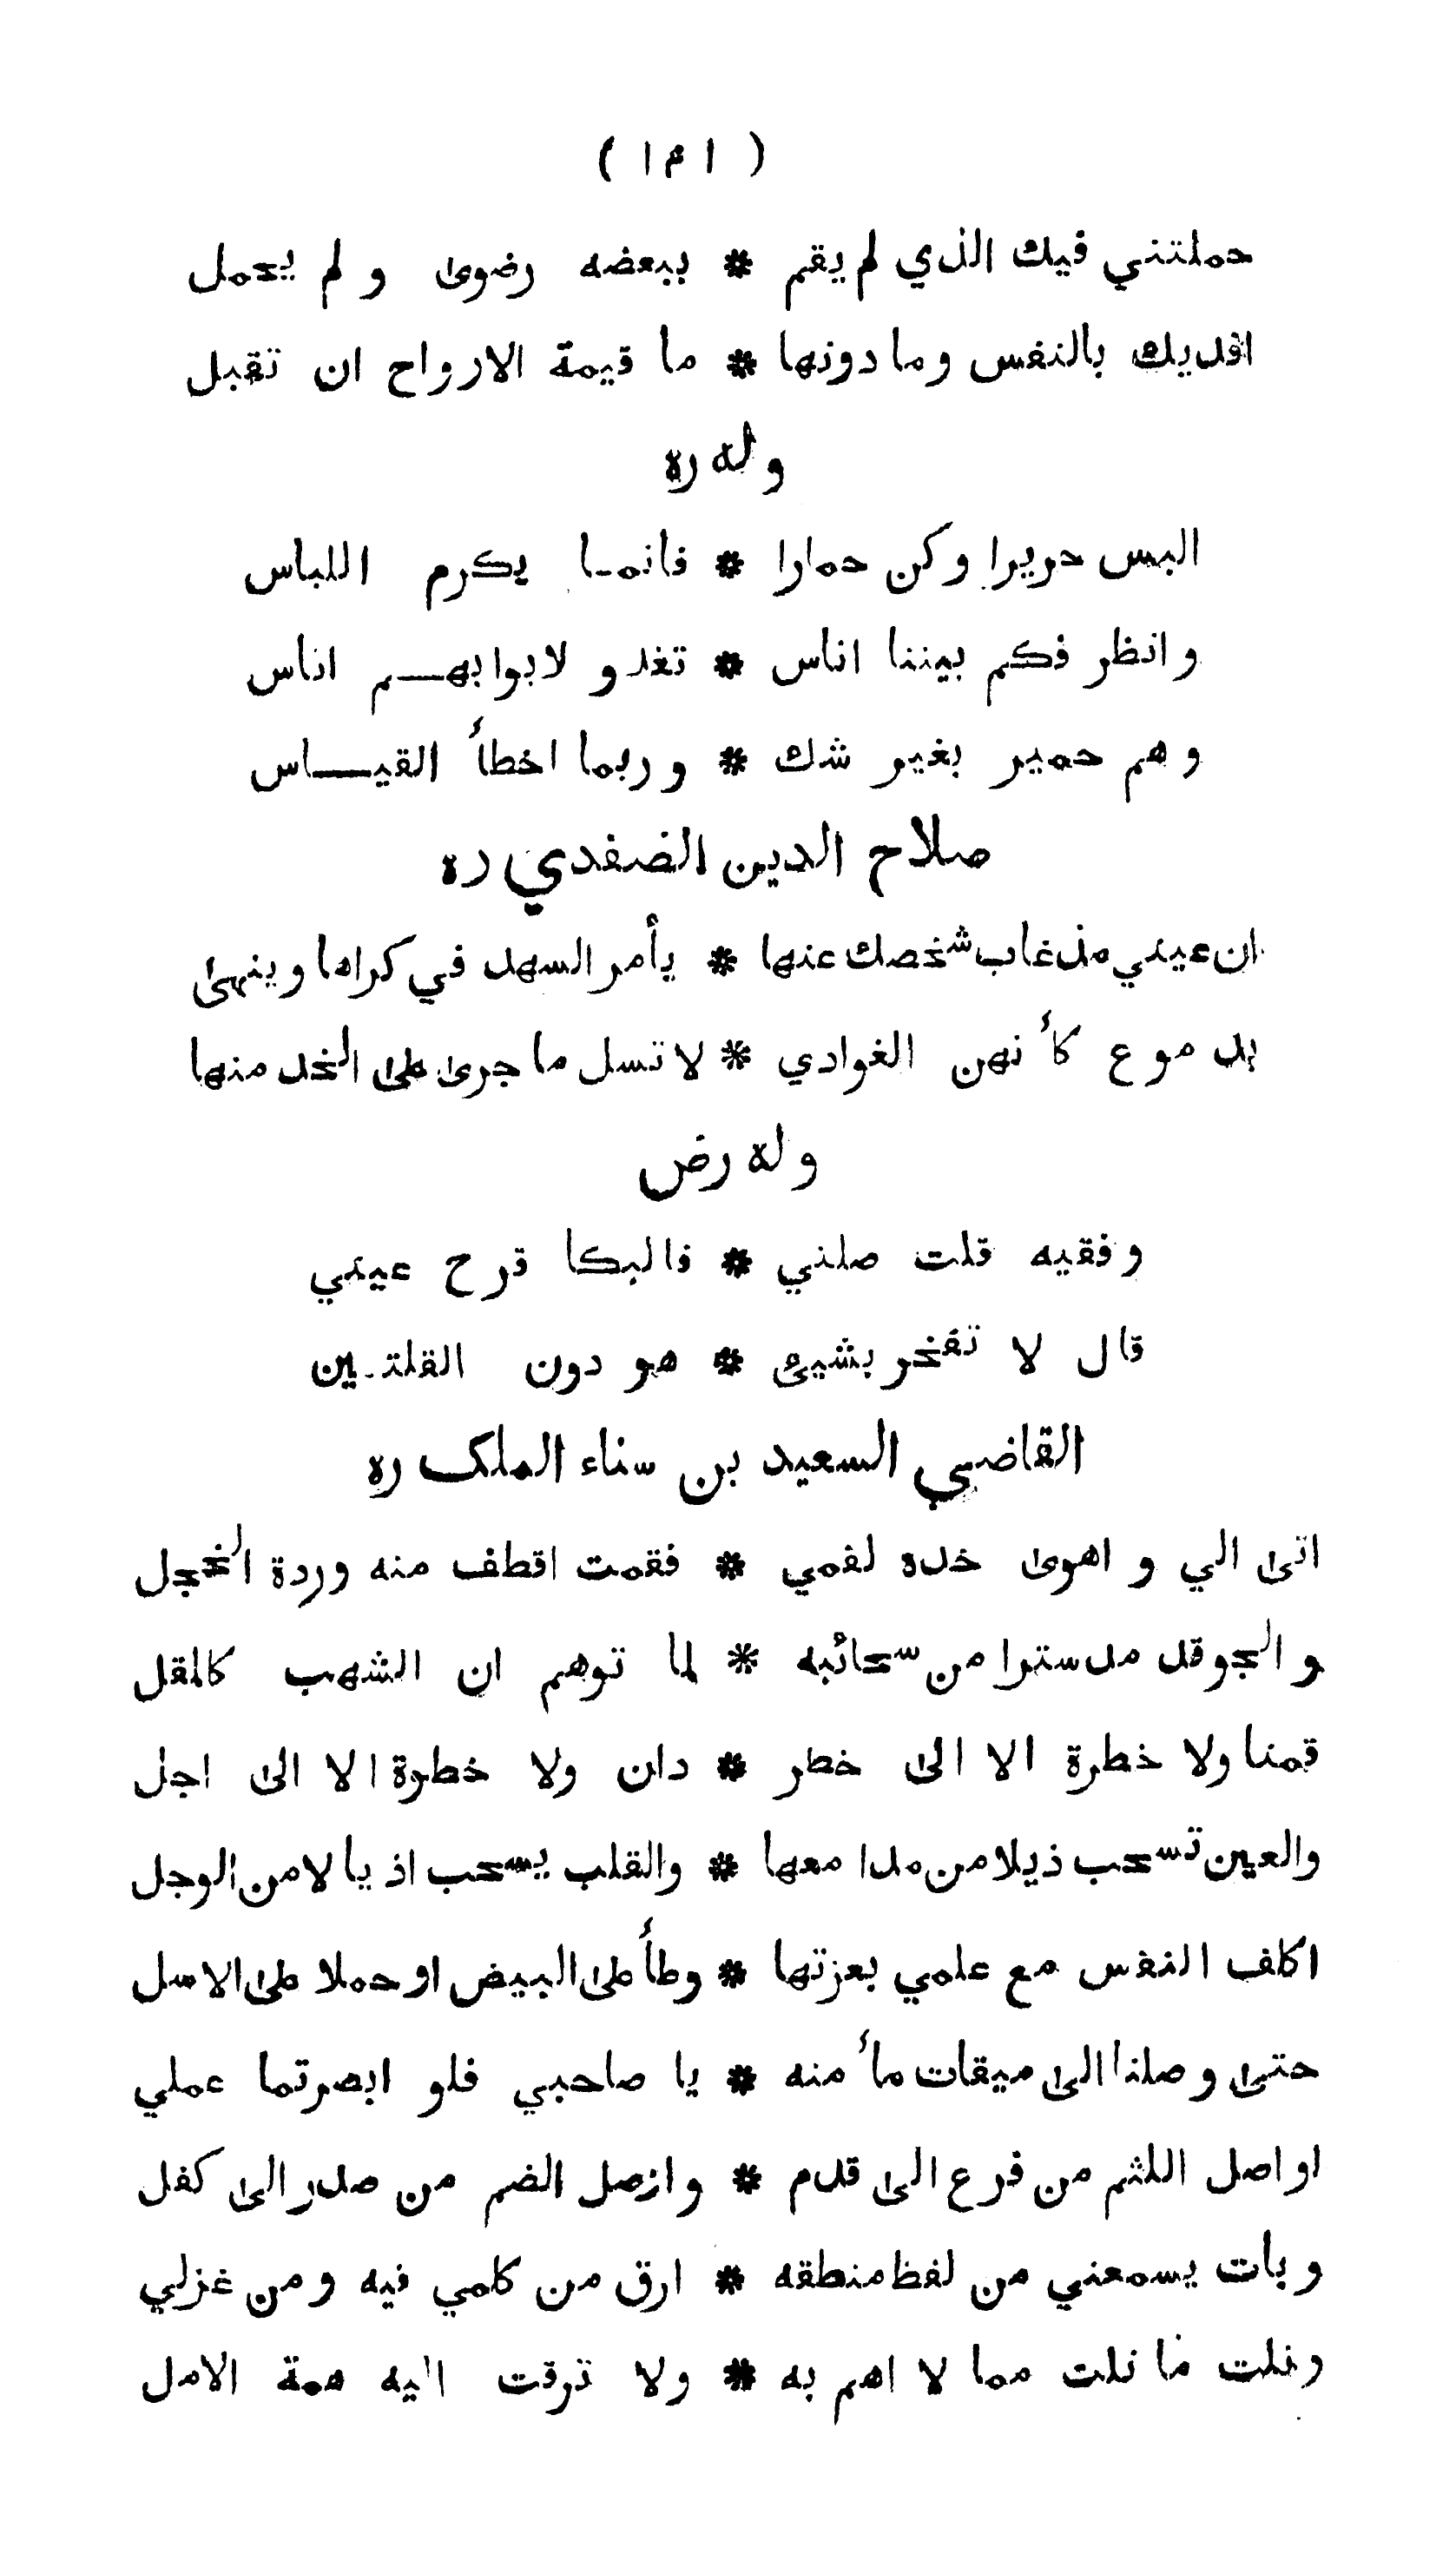 ( ١٤١ )
حملتني فيك الذي لم يقم * ببعضه رضوى و لم يحمل
افديك بالنفس وما دونها * ما قيمة الارواح ان تقبل
وله ره
البس حريرا وكن حمارا * فانما يكرم اللباس
وانظر فكم بيننا اناس * تغدو لابوابهم اناس
وهم حمير بغير شك * وربما اخطأ القياس
صلاح الدين الضفدي ره
ان عيني مذ غاب شخصك عنها * يأمر السهد في كراها وينهى
بدموع كأنهن الغوادي * لا تسل ما جرى على الخد منها
وله رض
وفقيه قلت صلني * فالبكا قرح عيني
قال لا تفخر بشيئ * هو دون القلتين
القاضي السعيد بن سناء الملک ره
اتى الي و اهوى خده لفمي * فقمت اقطف منه وردة الخجل
والجو قد مد سترا من سحائبه * لما توهم ان الشهب كالمقل
قمنا ولا خطرة الا الى خطر * دان ولا خطوة الا الى اجل
والعين تسحب ذيلا من مدامعها * والقلب يسحب اذيالا من الوجل
اكلف النفس مع علمي بعزتها * وطأ على البيض او حملا على الاسل
حتى وصلنا الى ميقات مأمنه * يا صاحبي فلو ابصرتما عملي
اواصل اللثم من فرع الى قدم * وانصل الضم من صدر الى كفل
وبات يسمعني من لفظ منطقه * ارق من كلمي فيه ومن غزلي
ونلت ما نلت مما لا اهم به * ولا ترقت اليه همة الامل